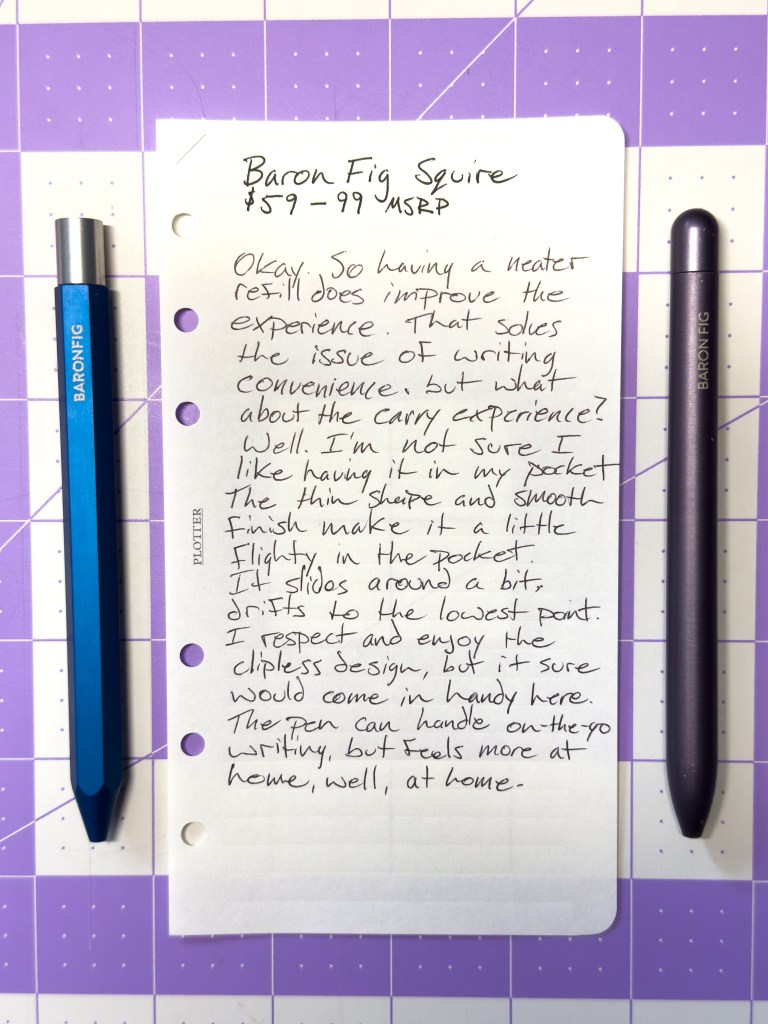 Baron Fig Squire
$59 – 99 MSRP
Okay. So having a neater
refill does improve the
experience. That solves
the issue of writing
convenience. but what
about the carry experience?
Well. I'm not sure I
like having it in my pocket
The thin shape and smooth
finish make it a little
flighty in the pocket.
It slides around a bit,
drifts to the lowest point.
I respect and enjoy the
clipless design, but it sure
would come in handy here.
The pen can handle on-the-go
writing, but feels more at
home, well, at home.
PLOTTER
BARONFIG
BARON FIG